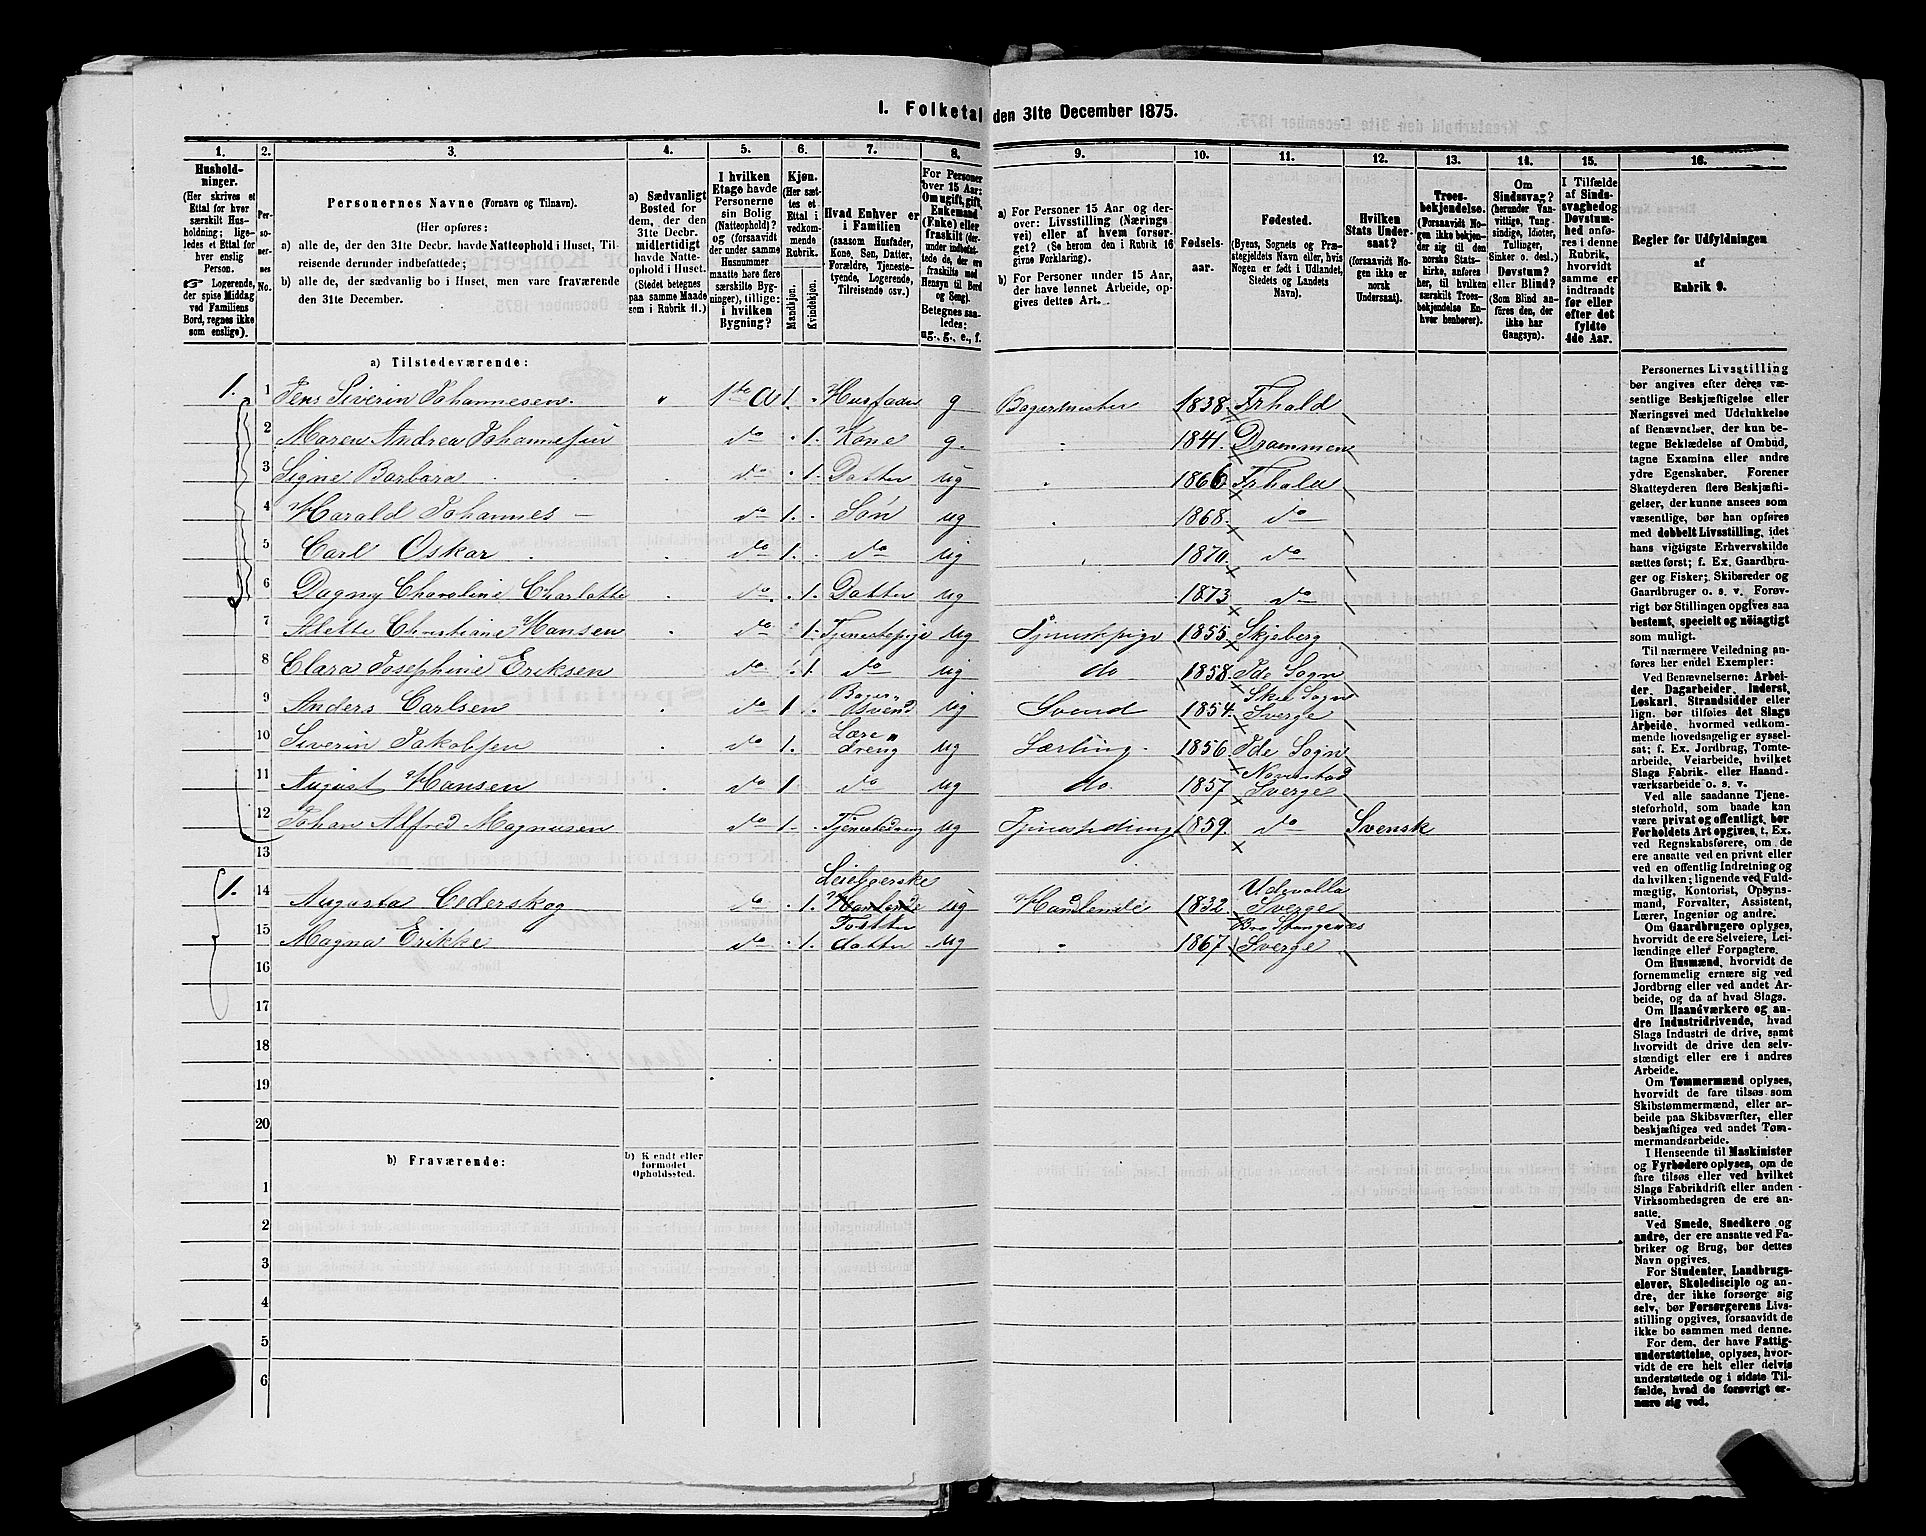 1. Folketal den 31te December 1875.
1. 2. 3. 4. 5. 6. 7. 8. 9. 10. 11. 12. 13. 14. 15. 16.
Hushold-
ninger.
(Her skrives et
Ettal for hver
særskilt Hus-
holdning; lige-
ledes et Ettal for
hver enslig
Person.
☞ Logerende,
der spise Middag
ved Familiens
Bord, regnes ikke
som enslige).
Per-
soner-
nes
No.
Personernes Navne (Fornavn og Tilnavn).
(Her opføres:
a) alle de, der den 31te Decbr. havde Natteophold i Huset, Til-
reisende derunder indbefattede;
b) alle de, der sædvanlig bo i Huset, men vare fraværende
den 31te December.
a) Sædvanligt
Bosted for
dem, der den
31te Decbr.
midlertidigt
havde Natte-
ophold i Huset.
(Stedet betegnes
paa samme Maade
som i Rubrik 11.)
I hvilken
Etage havde
Personerne
sin Bolig
(Natteophold)?
og (forsaavidt
der under samme
Husnummer
maatte høre flere
særskilte Byg-
ninger), tillige:
i hvilken
Bygning?
Kjøn.
(Her sæt-
tes et
Ettal i
vedkom-
mende
Rubrik.
Mandkjøn.
Kvindekjøn.
Hvad Enhver er
i Familien
(saasom Husfader,
Kone, Søn, Datter,
Forældre, Tjeneste-
tyende, Logerende,
Tilreisende osv.).
For Personer
over 15 Aar:
Om ugift, gift,
Enkemand
(Enke) eller
fraskilt (der-
under indbefat-
tede de, der ere
fraskilte med
Hensyn til Bord
og Seng).
Betegnes saa-
ledes:
ug., g., e., f.
a) For Personer 15 Aar og der-
over: Livsstilling (Nærings
vei) eller af hvem forsør-
get? (Se herom den i Rubrik 16
givne Forklaring).
b) For Personer under 15 Aar,
der have lønnet Arbeide, op-
gives dettes Art.
Fødsels-
aar.
Fødested.
(Byens, Sognets og Præ-
stegjeldets Navn eller, hvis
Nogen er født i Udlandet,
Stedets og Landets
Navn).
Hvilken
Stats Under-
saat?
(forsaavidt No-
gen ikke er
norsk
Undersaat).
Troes-
bekjendelse.
(Forsaavidt No-
gen ikke bekjen-
der sig til den
norske Stats-
kirke, anføres
her, til hvilken
særskilt Troes-
bekjendelse En-
hver henhører).
Om
Sindssvag?
(herunder Van-
vittige, Tung-
sindige, Idioter,
Tullinger,
Sinker o. desl.)
Døvstum?
eller Blind?
(Som Blind an-
føres den, der
ikke har
Gangsyn).
I Tilfælde
af Sinds
svaghed og
Døvstum-
hed anføres
i denne
Rubrik,
hvorvidt
samme er
indtraadt
før eller
efter det
fyldte
4de Aar.
Regler for Udfyldningen
af
Rubrik 9.
a) Tilstedeværende:
1. 1 Jens Siverin Johannesen. 1ste A 1. Husfader g Bagermester 1838 Frhald
2 Maren Andrea Johannesen do 1. Kone g. 1841. Drammen
3 Signe Barbara do 1. Datter ug 1866 Frhald
4 Harald Johannes - do 1. Søn ug 1868 do
5 Carl Oskar do 1. do ug 1870 do
6 Dagny Charoline Charlotte do 1. Datter ug 1873 do
7 Alette Christiane Hansen do 1. Tjenestepige ug Tjenestepige 1855 Skjeberg
8 Clara Josephine Eriksen do 1 do ug do 1858 Ide Sogn
9 Anders Carlsen do 1 Bager svend ug Svend 1854 Skee Sogn Sverge
10 Siverin Jakobsen do 1. Lære dreng ug Lærling 1856 Ide Sogn
11 August Hansen do 1 do ug do 1857 Sverge
12 Johan Alfred Magnusen do 1 Tjenestedreng ug Tjenestedreng 1859 do Svensk
13
1. 14 Augusta Cederskog do 1. Leieligerske ug Handlende 1832 Udevalla Sverge
15 Magna Erikke do 1. Foster datter ug 1867 Sverge
16
17
18
19
20
b) Fraværende:
b) Kjendt eller
formodet
Opholdssted.
1
2
3
4
5
6
Personernes Livsstilling
bør angives efter deres væ-
sentlige Beskjæftigelse eller
Næringsvei med Udelukkelse
af Benævnelser, der kun be-
tegne Beklædelse af Ombud,
tagne Examina eller andre
ydre Egenskaber. Forener
Skatteyderen flere Beskjæfti-
gelser, der kunne ansees som
væsentlige, bør han opføres
med dobbelt Livsstilling, idet
hans vigtigste Erhvervskilde
sættes først; f. Ex. Gaardbru-
ger og Fisker; Skibsreder og
Gaardbruger o. s. v. Forøv-
rigt bør Stillingen opgives saa
bestemt, specielt og nøiagtigt
som muligt.
Til nærmere Veiledning an-
føres her endel Exempler:
Ved Benævnelserne: Arbei-
der, Dagarbeider, Inderst,
Løskarl, Strandsidder eller
lign. bør tilføies det Slags
Arbeide, hvormed vedkom-
mende hovedsagelig er syssel-
sat; f. Ex. Jordbrug, Tomte-
arbeide, Veiarbeide, hvilket
Slags Fabrik- eller Haand-
værksarbeide o. s. v.
Ved alle saadanne Tjene-
steforhold, som baade kan
være privat og offentligt, bør
Forholdets Art opgives, t. Ex.
ved Regnskabsførere, om de
ere ansatte ved en privat eller
ved en offentlig Indretning og
da hvilken; lignende ved Fuld-
mægtig, Kontorist, Opsyns-
mand, Forvalter, Assistent,
Lærer, Ingeniør og andre.
Om Gaardbrugere oplyses,
hvorvidt de ere Selveiere, Lei-
lændinge eller Forpagtere.
Om Husmænd, hvorvidt de
fornemmelig ernære sig ved
Jordbrug eller ved andet Ar-
beide, og da af hvad Slags.
Om Haandværkere og an-
dre Industridrivende, hvad
Slags Industri de drive, samt
hvorvidt de drive den selv-
stændigt eller ere i andres
Arbeide.
Om Tømmermænd oplyses,
hvorvidt de fare tilsøs som
Skibstømmermænd, eller ar-
beide paa Skibsværfter, eller
beskjæftiges ved andet Tøm-
mermandsarbeide.
I Henseende til Maskinister
og Fyrbødere oplyses, om de
fare tilsøs eller ved hvilket
Slags Fabrikdrift eller anden
Virksomhedsgren de ere an-
satte.
Ved Smede, Snedkere og
andre, der ere ansatte ved Fa-
briker og Brug, bør dettes
Navn opgives.
For Studenter, Landbrugs-
elever, Skoledisciple og an-
dre, der ikke forsørge sig
selv, bør Forsørgerens Livs-
stilling opgives, forsaavidt de
ikke bo sammen med denne.
For dem, der have Fattig-
understøttelse, oplyses, hvor-
vidt de ere helt eller delvis
understøttede og i sidste Til-
fælde, hvad de forøvrigt er-
nære sig ved.